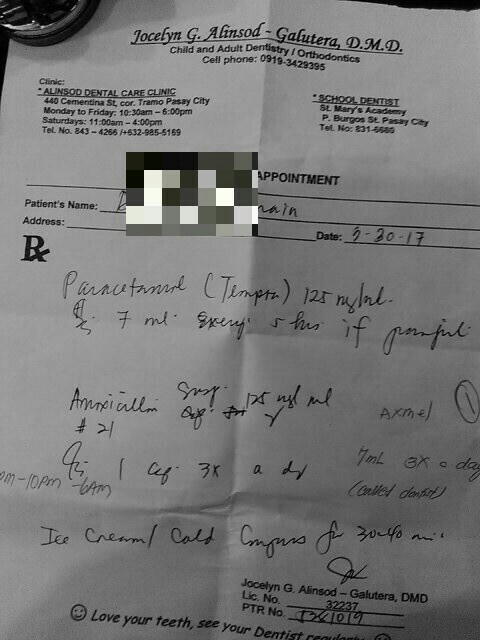 Jocelyn G. Alinsod - Galutera, D.M.D.
Child and Adult Dentistry / Orthodontics
Cell phone: 0919-3429395
Clinic:
* ALINSOD DENTAL CARE CLINIC
440 Cementina St, cor. Tramo Pasay City
Monday to Friday: 10:30am – 6:00pm
Saturdays: 11:00am – 4:00pm
Tel. No. 843 – 4266 /+632-985-5169
* SCHOOL DENTIST
St. Mary's Academy
P. Burgos St. Pasay City
Tel. No: 831-6680
APPOINTMENT
Patient's Name:
Address:
Date: 3-30-17
Rx
Paracetamol (Tempra) 125 mg/ml.
7 ml. every 5 hrs if painful
Amoxicillin Susp. 125 mg/ ml
# 21
Axmel
1
1 cap. 3x a dy
7mL 3x a day
(called dentist)
pm-10pm -6AM
Ice Cream/ Cold Compress for 30-40 min.
Jocelyn G. Alinsod – Galutera, DMD
Lic. No. 32237
PTR No.
Love your teeth, see your Dentist regularly